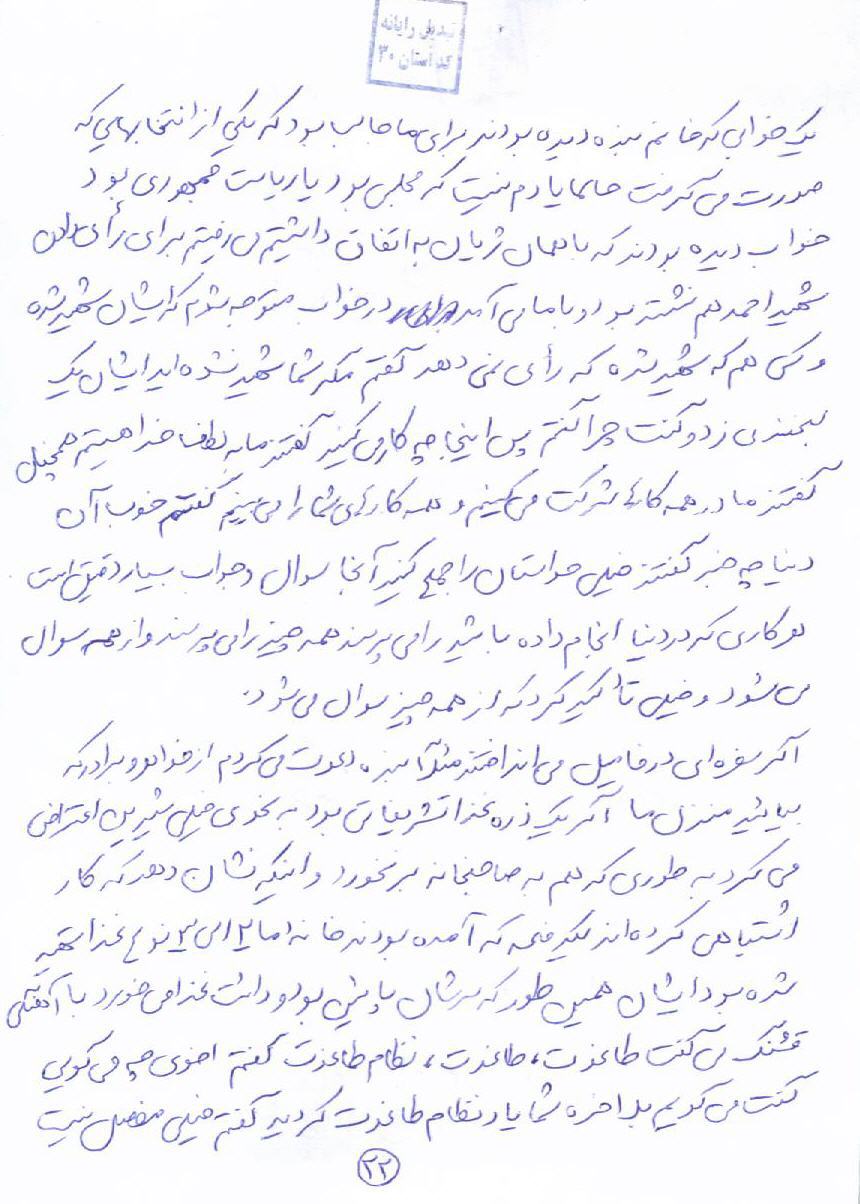 تبدیل رایانه
کد استان ۳۰
یک خوابی که خانم بنده دیده بودند برای ما جالب بود که یکی از انتخابهایی که
صورت می گرفت حالا یادم نیست که مجلس بود یا ریاست جمهوری بود
خواب دیده بودند که با همان ژیان به اتفاق داشتیم می رفتیم برای رأی دادن
شهید احمد هم نشسته بود و با ما می آمد در خواب متوجه شدم که ایشان شهید شده
و کسی هم که شهید شده که رأی نمی دهد گفتم مگر شما شهید نشده اید ایشان یک
لبخندی زد و گفت چرا گفتم پس اینجا چه کار می کنید گفتند ما به لطف خدا هستیم همچنین
گفتند ما در همه کارها شرکت می کنیم و همه کارهای شما را می بینیم گفتم خوب آن
دنیا چه خبر گفتند خیلی حواستان را جمع کنید آنجا سوال و جواب بسیار دقیق است
هر کاری که در دنیا انجام داده باشید را می پرسند همه چیز را می پرسند و از همه سوال
می شود و خیلی تأکید کرد که از همه چیز سوال می شود.
اگر سفره ای در فامیل می انداختند مثلاً بنده دعوت می کردم از خواهر و برادر که
بیائید منزل ما اگر یک ذره غذا تشریفاتی بود به نحوی خیلی شیرین اعتراض
می کرد به طوری که هم به صاحبخانه بر نخورد و اینکه نشان دهد که کار
اشتباهی کرده اند یک دفعه که آمده بودند خانه ما ۲ الی ۳ نوع غذا تهیه
شده بود ایشان همین طور که سرشان پایین بود و داشت غذا می خورد با آهنگی
قشنگ می گفت طاغوت، طاغوت، نظام طاغوت گفتم اخوی چه می گویی
گفت می گویم بلاخره شما یاد نظام طاغوت کردید گفتم خیلی مفصل نیست
۲۲